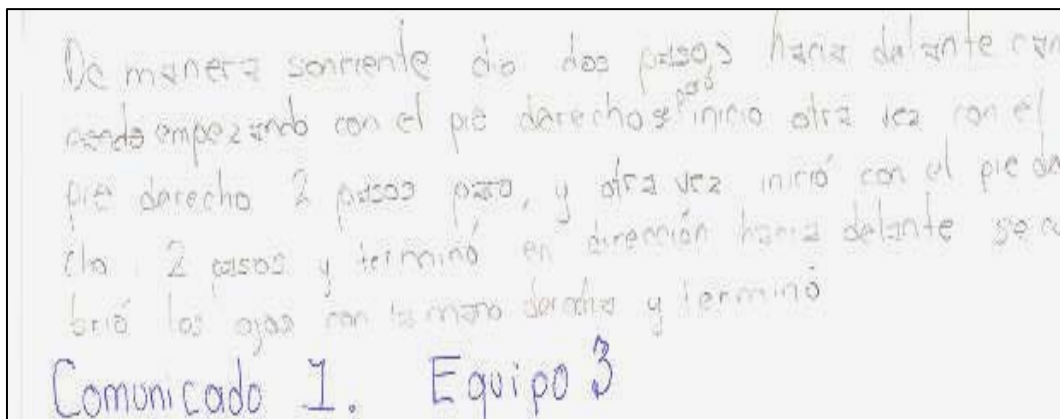 De manera sonriente dio dos pasos hacia delante cam
nando empezando con el pie derecho se paró inicio otra vez con el
pie derecho 2 pasos paro, y otra vez inició con el pie de
cho 2 pasos y terminó en dirección hacia delante se c
brió los ojos con la mano derecha y terminó
Comunicado 1. Equipo 3